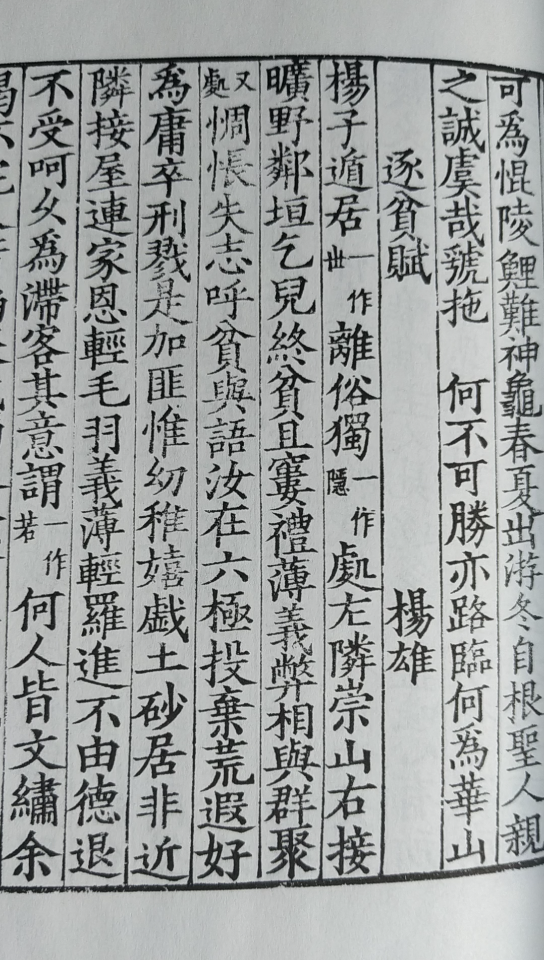 可爲惃陵鯉難神龜春夏出游冬自根聖人親
之誠虞哉號拖　何不可勝亦路臨何爲華山
逐貧賦　楊雄
楊子遁居一作世離俗獨一作隱處左隣崇山右接
曠野鄰垣乞兒終貧且窶禮薄義弊相與群聚
又處惆悵失志呼貧與語汝在六極投棄荒遐好
爲庸卒刑戮是加匪惟幼稚嬉戯土砂居非近
隣接屋連家恩輕毛羽義薄輕羅進不由德退
不受呵久爲滯客其意謂一作若何人皆文繡余